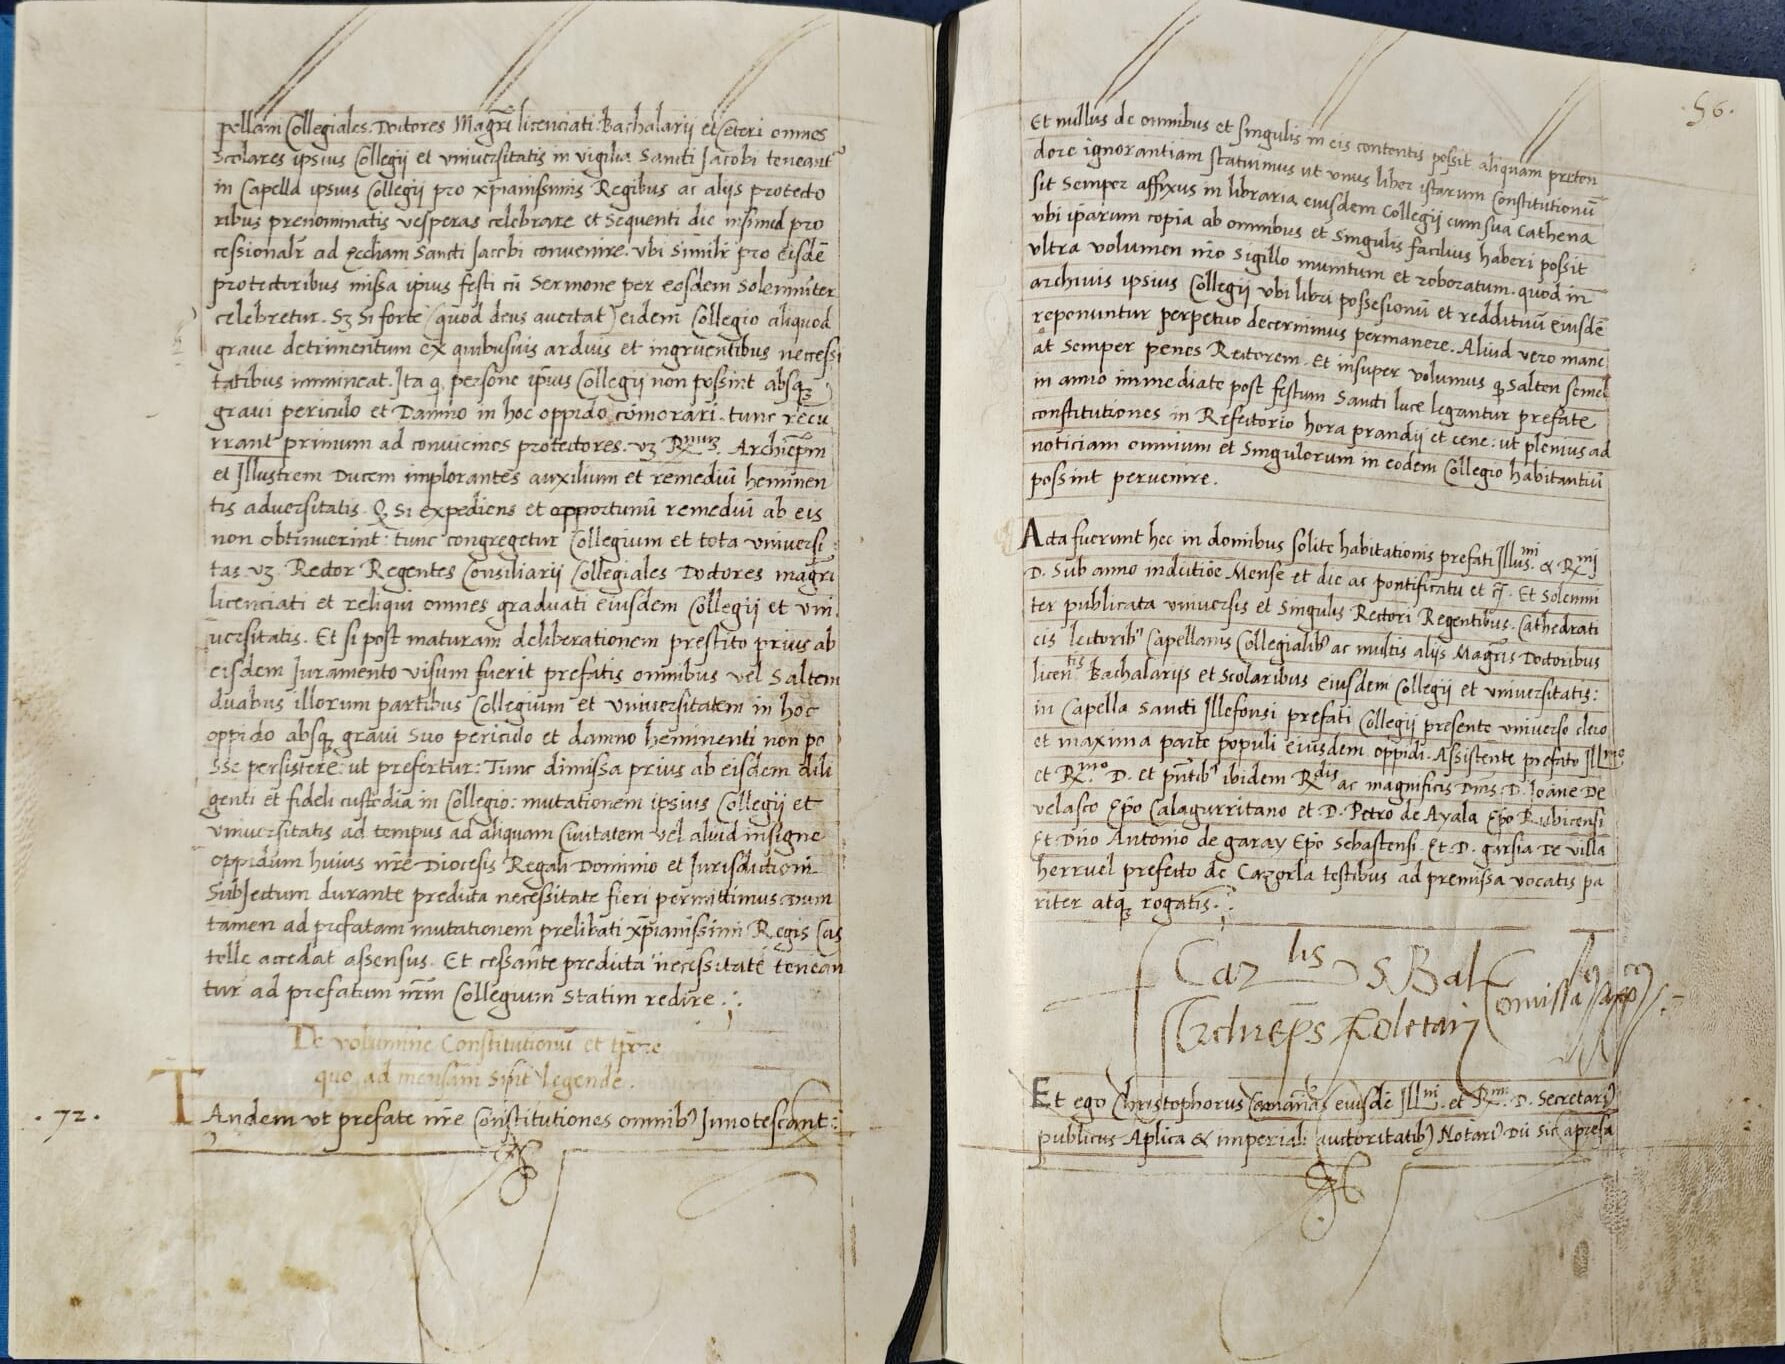 pellam Collegiales. Doctores Magr̃i licenciati. Bachalarij et Ceteri omnes
Scolares ipsius Collegij et vniuersitatis in vigilia Sancti Jacobi teneant᷑
in Capella ipsius Collegij pro xp̃ianissimis Regibus ac alijs protecto
ribus prenominatis vesperas celebrare et Sequenti die insimul pro
cessionalr̃ ad Ecc̃liam Sancti Jacobi convenire. vbi Similr̃ pro eisdẽ
protectoribus missa ip̃ius festi cũ Sermone per eosdem Solemniter
celebretur. Sꝫ Si forte (quod deus auertat) eidem Collegio aliquod
graue detrimentum ex quibusuis arduis et ingruentibus necessi
tatibus immineat. Ita ꝙ persone ip̃ius Collegij non possint absqꝫ
graui periculo et Damno in hoc oppido cõmorari. tunc recu
rrant primum ad convicinos protectores. vꝫ Rᵐᵘᵐ. Archiep̃m
et Illustrem Ducem implorantes auxilium et remediũ heminen
tis adversitatis. Q. Si expediens et opportunũ remediũ ab eis
non obtinuerint: tunc congregetur Collegium et tota vniuersi
tas. vꝫ. Rector Regentes Consiliarij Collegiales Doctores magr̃i
licenciati et reliqui omnes graduati eiusdem Collegij et vni
uersitatis. Et si post maturam deliberationem prestito prius ab
eisdem Juramento visum fuerit prefatis omnibus vel Saltem
duabus illorum partibus Collegium et vniuersitatem in hoc
oppido absqꝫ graui Suo periculo et damno heminenti non po
sse persistere: ut prefertur: Tunc dimissa prius ab eisdem dili
genti et fideli custodia in Collegio: mutationem ipsius Collegij et
vniuersitatis ad tempus ad aliquam Ciuitatem vel aliud insigne
oppidum huius nr̃e Diocesis Regali Dominio et Jurisdictioni
Subjectum durante predicta necessitate fieri permittimus Dum
tamen ad prefatam mutationem prelibati xp̃ianissimi Regis Cas
telle accedat assensus. Et cessante predicta necessitate tenean
tur ad prefatum nr̃m Collegium Statim redire.
De volumine Constitutionũ et tp̃re
quo ad mensam sint legende.
.72. TAndem vt prefate nr̃e Constitutiones omnibꝰ Innotescant:
.56.
Et nullus de omnibus et singulis in eis contentis possit aliquam preten
dere ignorantiam statuimus ut vnus liber istarum Constitutionũ
sit Semper affixus in libraria eiusdem Collegij cum sua Cathena
vbi ip̃arum copia ab omnibus et Singulis facilius haberi possit
vltra volumen nr̃o Sigillo munitum et roboratum. quod in
archiuis ipsius Collegij vbi libri possesionũ et reddituũ eiusdẽ
reponuntur perpetuo decernimus permanere. Aliud vero mane
at Semper penes Rectorem. Et insuper volumus ꝙ Salten semel
in anno immediate post festum Sancti luce legantur prefate
constitutiones in Refectorio hora prandij et cene: ut plenius ad
noticiam omnium et Singulorum in eodem Collegio habitantiũ
possint pervenire.
Acta fuerunt hec in domibus solite habitationis prefati Illusᵐⁱ. & Rᵐⁱ
D. Sub anno indictiõe Mense et die ac pontificatu et c̃. Et Solemni
ter publicata vniuersis et Singulis Rectori Regentibus. Cathedrati
cis lectoribꝰ Capellanis Collegialibꝰ ac multis alijs Magr̃is Doctoribus
licenᵗⁱˢ Bachalarijs et Scolaribus eiusdem Collegij et vniuersitatis:
in Capella Sancti Illefonsi prefati Collegij presente vniuerso clero
et maxima parte populi eiusdem oppidi. Assistente prefato Illᵐᵒ
et Rᵐᵒ D. et pñtibꝰ ibidem Rᵈⁱˢ ac magnificis Dñis. D. Ioãne De
velasco Ep̃o Calagurritano et D. Petro de Ayala Ep̃o Rubicensi
Et Dñõ Antonio de garay Ep̃o Sebastensi. Et D. garsia De villa
herruel prefecto de Cazorla testibus ad premissa vocatis pa
riter atqꝫ rogatis.
Carˡⁱˢ S Bal
Archiep̃s Toletan
Et ego Christophorus eiusdẽ Illᵐⁱ. et Rᵐⁱ. D. Secretariꝰ
publicus Ap̃lica & imperiali auctoritatibꝰ Notariꝰ